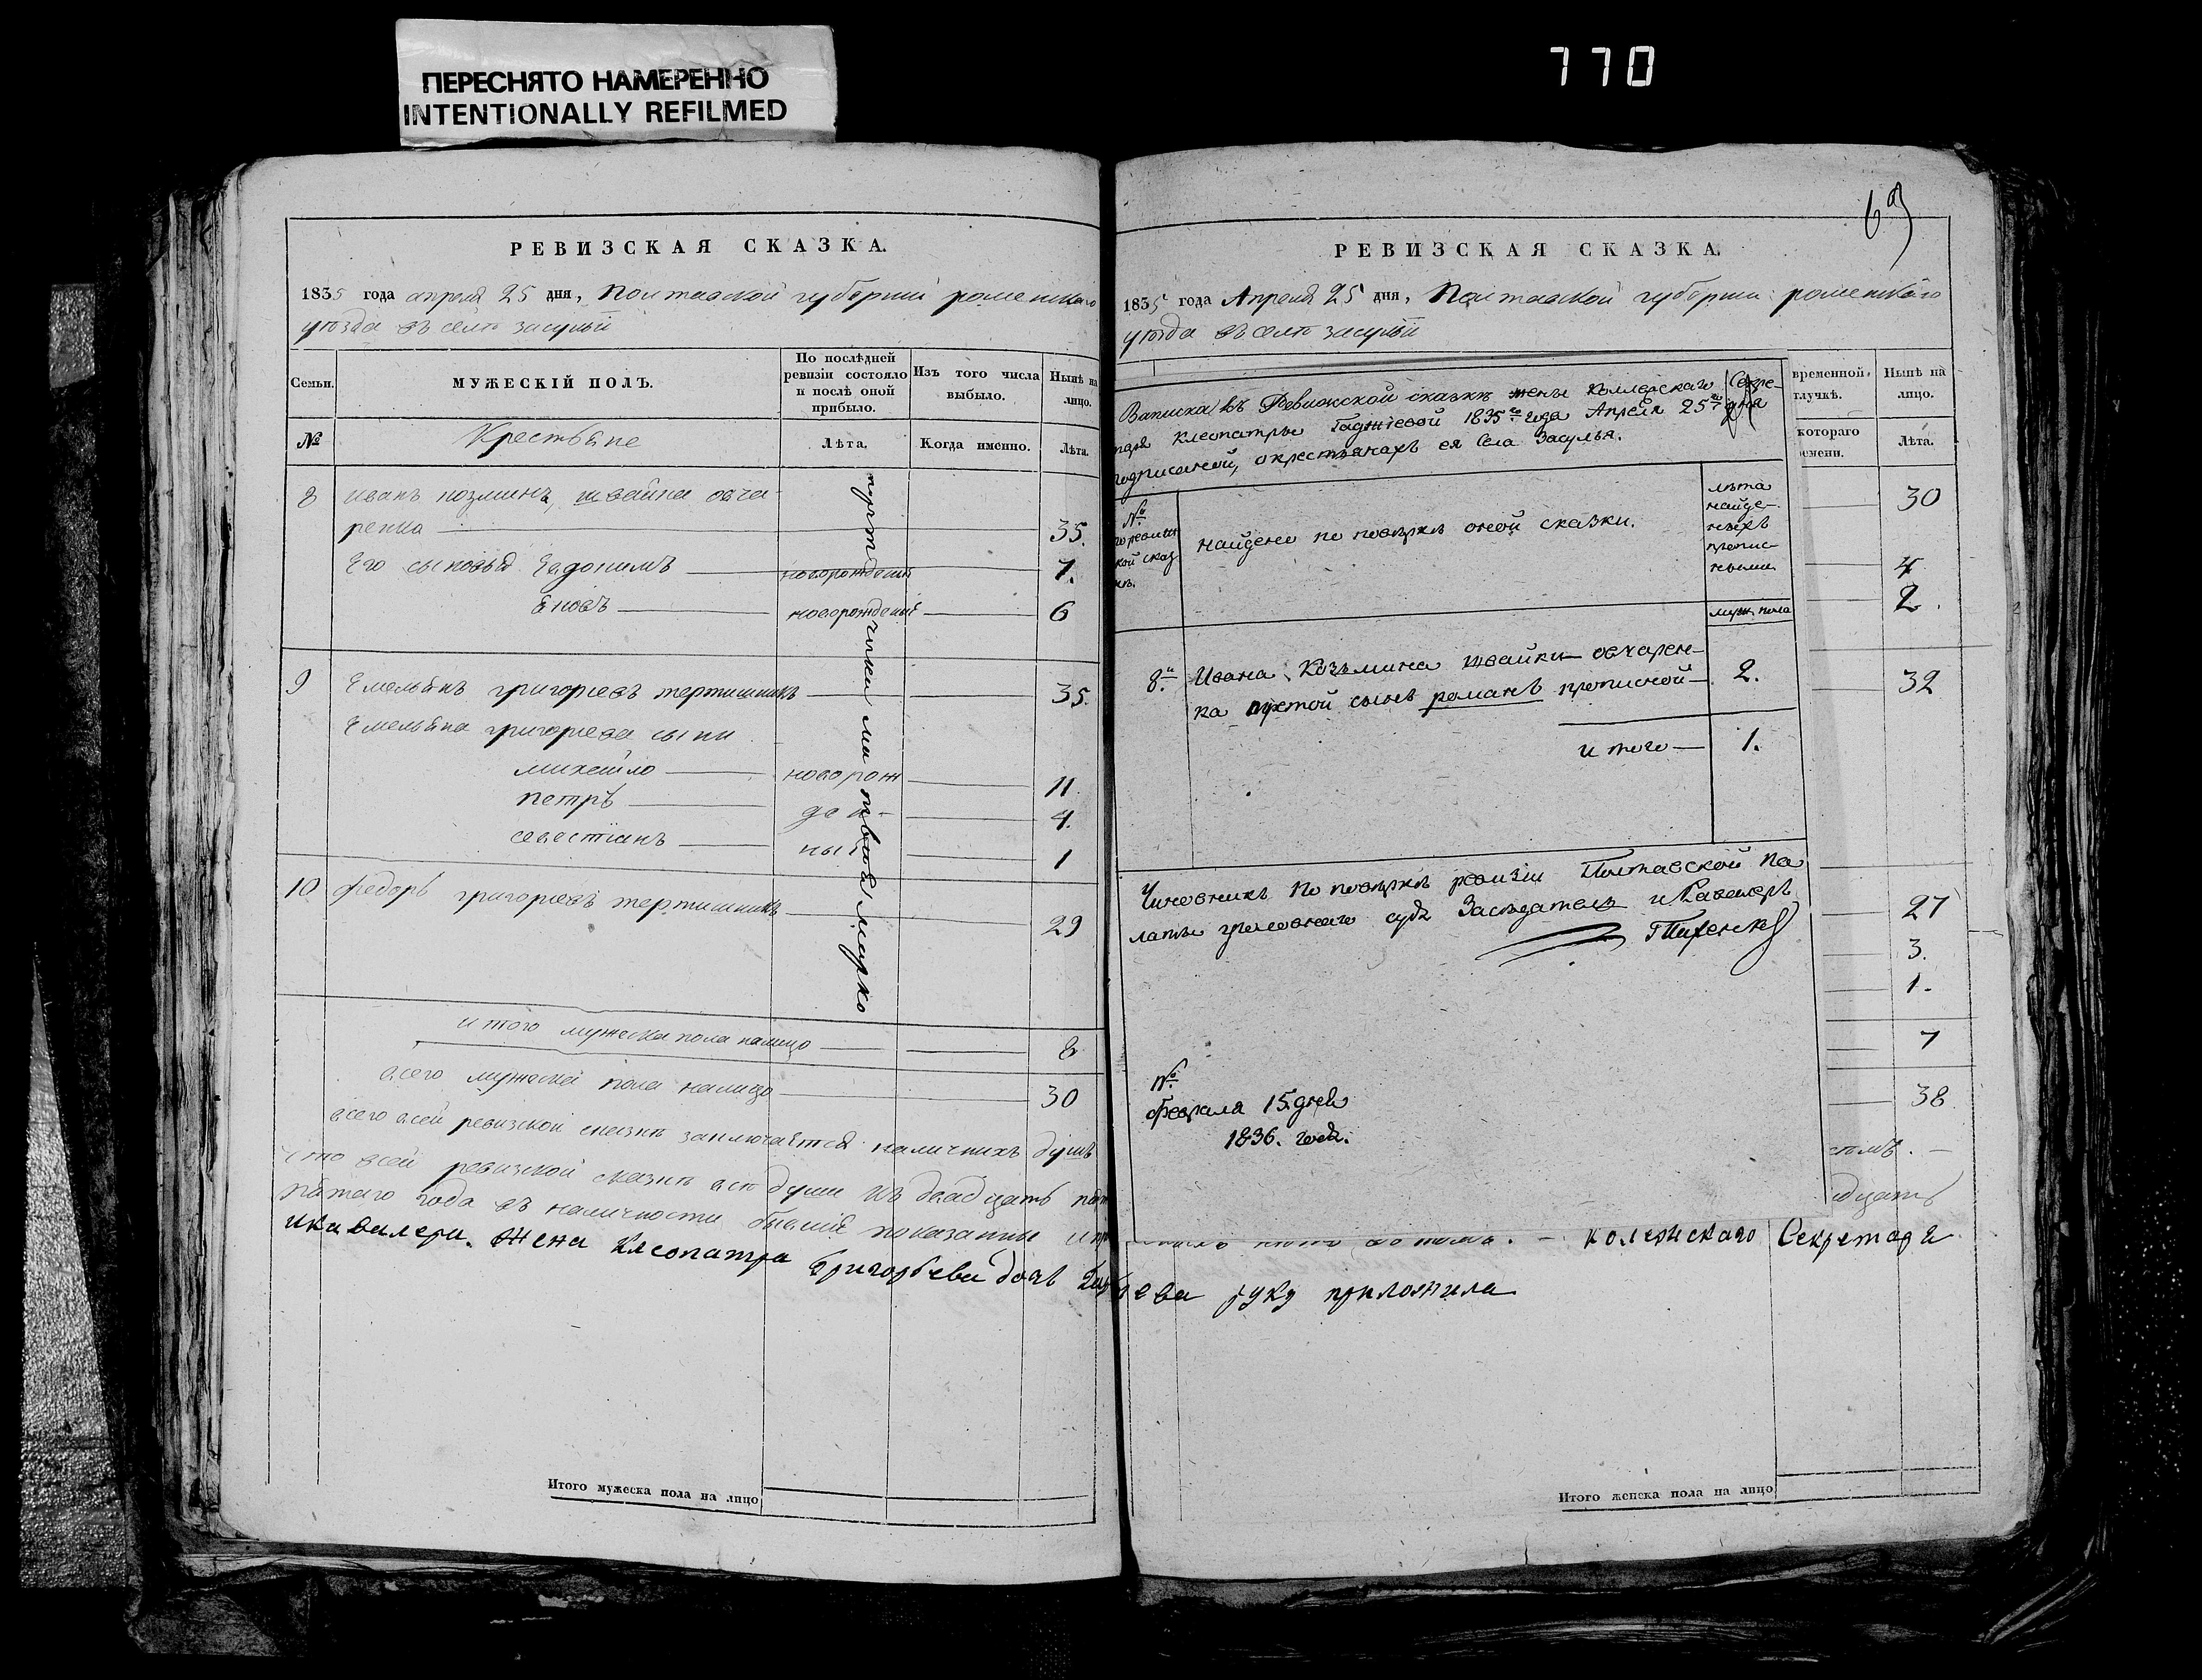 ПЕРЕСНЯТО НАМЕРЕННО
INTENTIONALLY REFILMED
770
РЕВИЗСКАЯ СКАЗКА.
1835 года апреля 25 дня, Полтавской губерніи роменскаго
уѣзда въ селѣ засульи
Семьи.
МУЖЕСКІЙ ПОЛЪ.
По послѣдней ревизіи состояло и послѣ оной прибыло.
Изъ того числа выбыло.
Нынѣ на лицо.
№
Крестьяне
Лѣта.
Когда именно.
Лѣта.
8 иванъ козминъ, швайка овча-
ренка 35.
Его сыновья Евдокимъ новорожденій 7.
новорожденіе 6
9 Емельянъ григориевъ тертишникъ 35.
Емельяна григориева сыни
михайло новорож 11
петръ де 4.
севестіанъ ныє 1
10 федоръ григориевъ тертишникъ 29
итого мужеска пола налицо 8
всего мужеска пола налицо 30
всего всей ревизской сказкѣ заключается наличнихъ душъ
что всей ревизской сказкѣ всѣ души изъ двадцать пят
пятаго года въ наличности бывшіе показанны и
икавалера. жена Клеопатра Григорьева дочь
Итого мужеска пола на лицо
69
РЕВИЗСКАЯ СКАЗКА.
1835 года Апреля 25 дня, Полтавской губерніи роменскаго
уѣзда въ селѣ засульи
Записка къ Ревизской сказкѣ жены Коллежскаго Секре-
таря Клеопатры Гаджіевой 1835го года Апреля 25го дня
подписаной, окрестьянахъ ея Села Засулья.
временной
тлучкѣ.
Нынѣ на лицо.
котораго
емени.
Лѣта.
№
по ревизс
кой сказ
кѣ.
найдено по повѣркѣ оной сказки.
лѣта
найде-
ныхъ
пропис-
ными
муж. пола
8й Ивана Козьмина швайки овчарен-
ка третой сынъ романъ прописной 2.
итого 1.
Чиновникъ По повѣркѣ ревизіи Полтавской Па
латы уголовного суда Засѣдатель и Кавалеръ
№
Февраля 15. дня
1836. года.
30
4
2.
32
27
3.
1.
7
38
дцать
колежскаго Секретаря
ева руку приложила
Итого женска пола на лицо